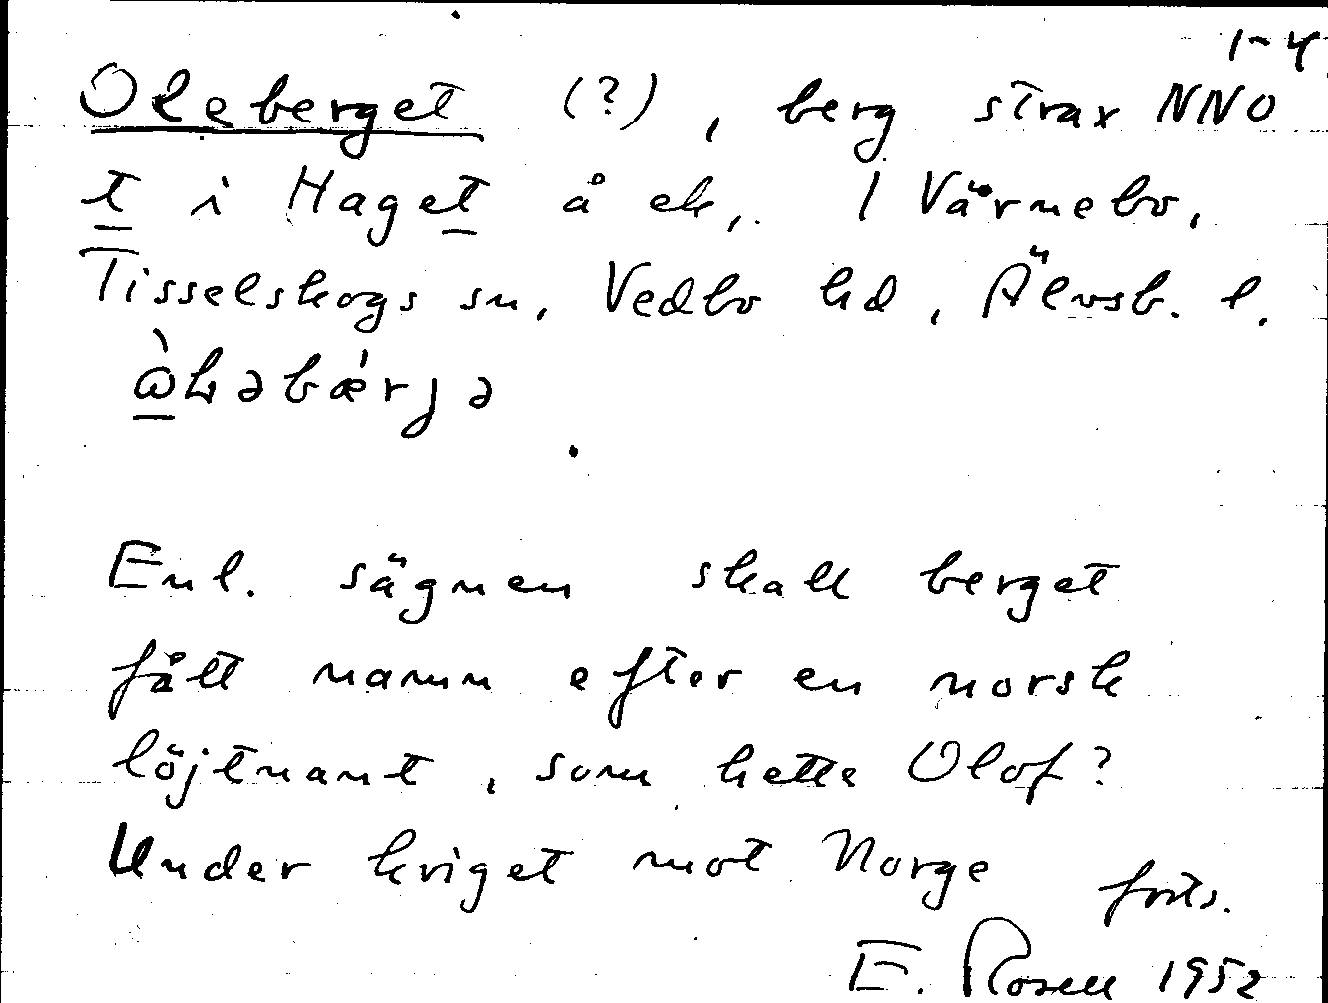 1-4
Oleberget (?), berg strax NNO
t i Haget å ek,. 1 Värnebo,
Tisselskogs sn, Vedbo hd, Älvsb. l.
Enl. sägnen skall berget
fått namn efter en norsk
löjtnant, som hette Olof?
Under kriget mot Norge forts.
E. Rosell 1952